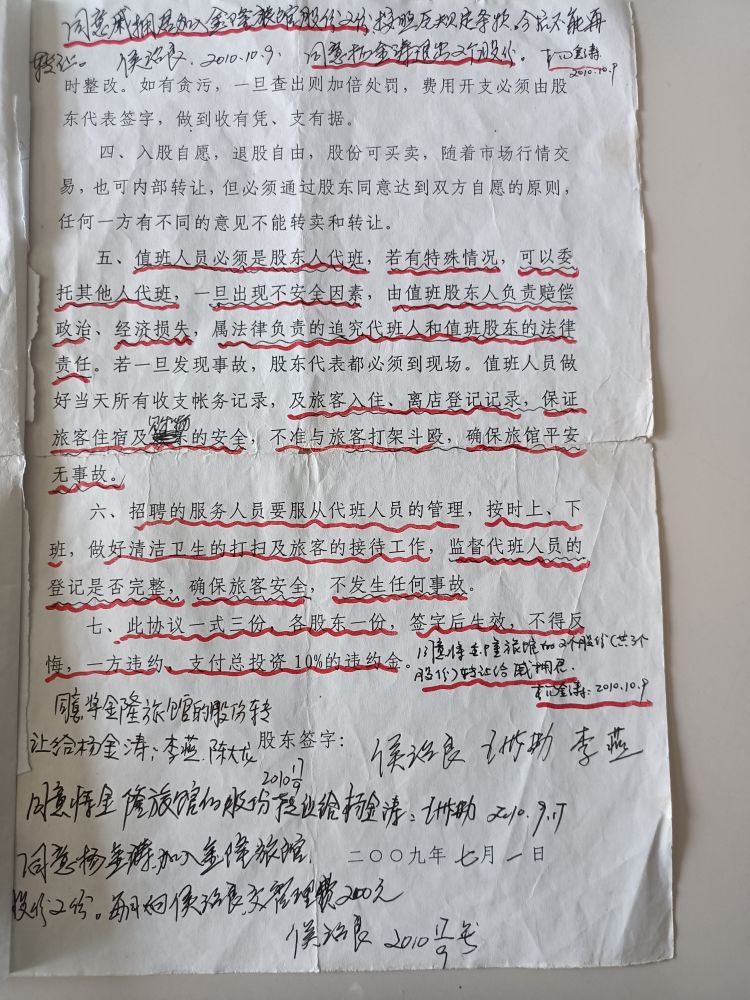 同意戚拥军加入金隆旅馆股份2份,按照无规定条款,今后不能再
转让。 侯治良. 2010.10.9. 同意杨金涛退出2个股份。 杨金涛.
2010.10.9
时整改。如有贪污,一旦查出则加倍处罚,费用开支必须由股
东代表签字,做到收有凭、支有据。
四、入股自愿,退股自由,股份可买卖,随着市场行情交
易,也可内部转让,但必须通过股东同意达到双方自愿的原则,
任何一方有不同的意见不能转卖和转让。
五、值班人员必须是股东人代班,若有特殊情况,可以委
托其他人代班,一旦出现不安全因素,由值班股东人负责赔偿
政治、经济损失,属法律负责的追究代班人和值班股东的法律
责任。若一旦发现事故,股东代表都必须到现场。值班人员做
好当天所有收支帐务记录,及旅客入住、离店登记记录,保证
旅客住宿及财物的安全,不准与旅客打架斗殴,确保旅馆平安
无事故。
六、招聘的服务人员要服从代班人员的管理,按时上、下
班,做好清洁卫生的打扫及旅客的接待工作,监督代班人员的
登记是否完整,确保旅客安全,不发生任何事故。
七、此协议一式三份,各股东一份,签字后生效,不得反
悔,一方违约、支付总投资10%的违约金。
同意将金隆旅馆加2个股份(共3个
股份)转让给戚拥军.
杨金涛:2010.10.9
同意将金隆旅馆的股份转
让给杨金涛;李燕.陈大龙
2010 17/9
股东签字: 侯治良 李燕
同意将金隆旅馆的股份转让给杨金涛: 2010.9.17
同意杨金涛加入金隆旅馆.
二〇〇九年 七月 一日
股份2份。每月由侯治良交管理费200元
侯治良 2010 17/9号